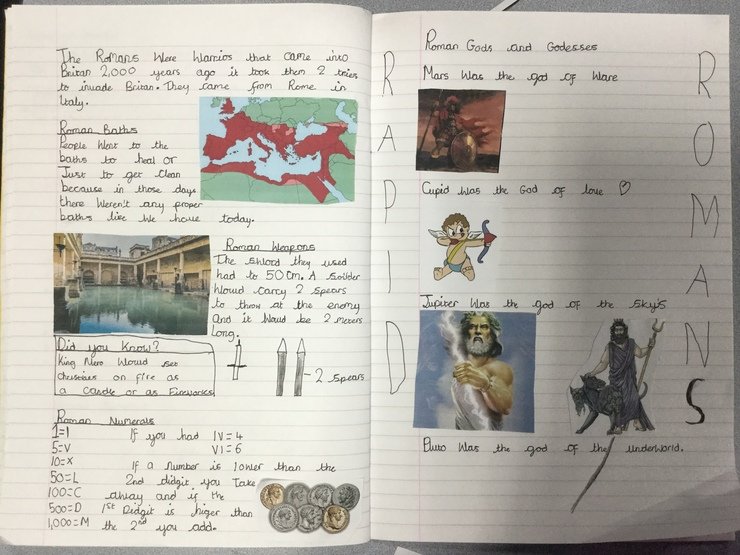 The Romans Were Warrios that came into
Britan 2,000 years ago it took them 2 tries
to invade Britan. They came from Rome in
Italy.
Roman Baths
People Went to the
baths to heal or
Just to get Clean
because in those days
there Weren't any proper
baths like We have today.
Roman Weapons
The Sword they used
had to 50 cm. A Soilder
Would Carry 2 Spears
to throw at the enemy
and it Would be 2 meters
long.
Did you Know?
King Nero Would Set
Christians on fire as
a Candle or as Fireworks
2 Spears
Roman Numerals
1=I
5=V
10=X
50=L
100=C
500=D
1,000=M
If you had IV=4
VI=6
If a number is lower than the
2nd didgit you Take
away and if the
1st Didgit is higer than
the 2nd you add.
RAPID
Roman Gods and Godesses
Mars Was the god of Ware
Cupid Was the God of love ♡
Jupiter Was the god of the Sky's
Pluto Was the god of the underworld.
ROMANS